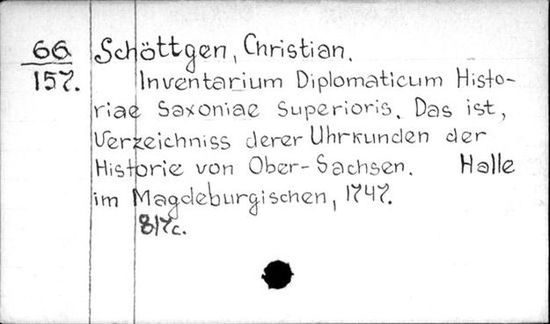 66
157.
Schöttgen, Christian.
Inventarium Diplomaticum Histo-
riae Saxoniae Superioris. Das ist,
Verzeichniss derer Uhrkunden der
Historie von Ober-Sachsen. Halle
im Magdeburgischen, 1747.
817c.